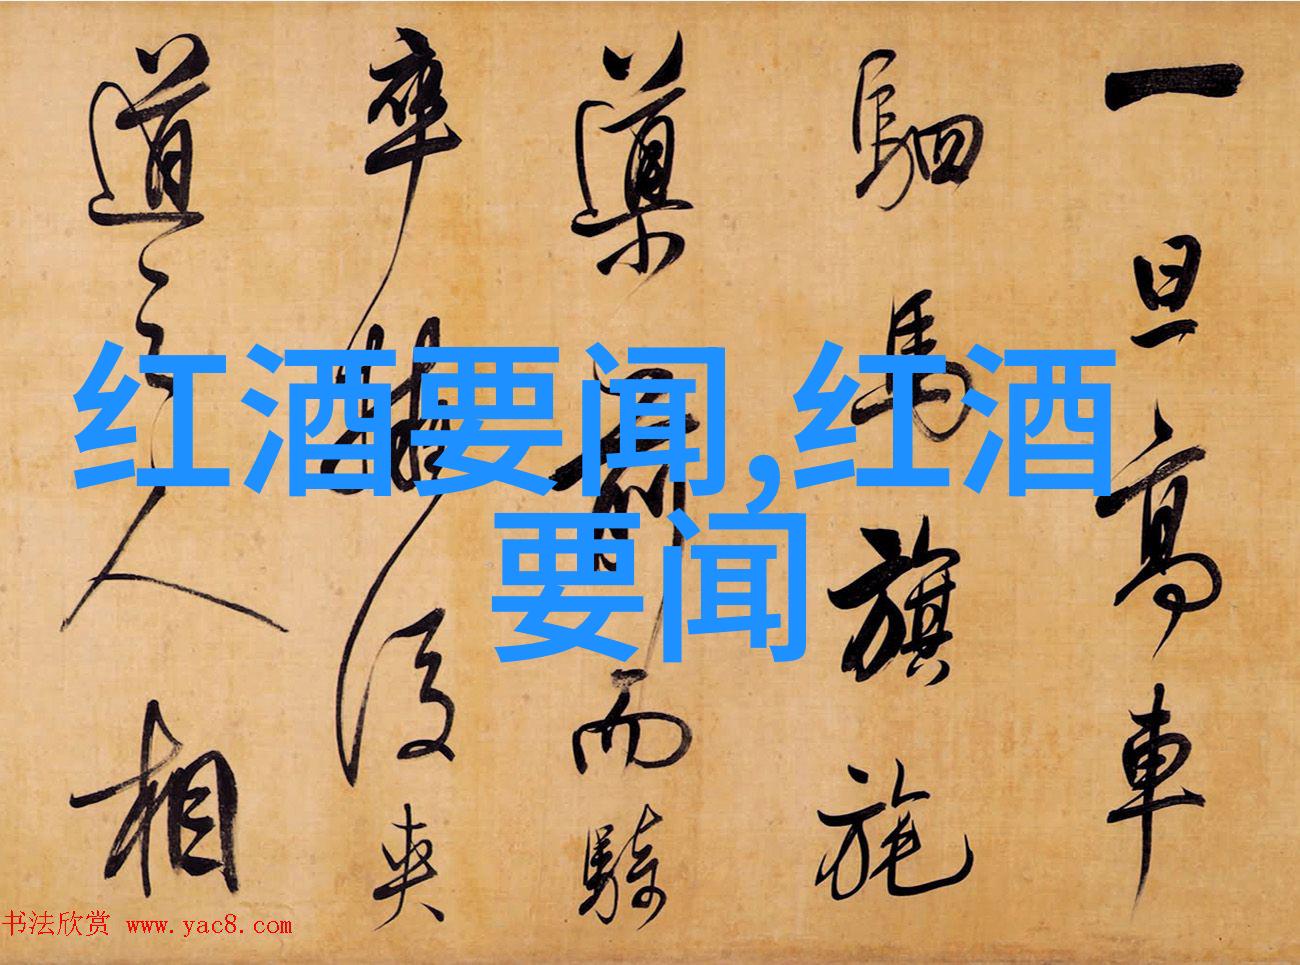 一旦高車
駟馬旗旄
導前而騎
卒擁後夾
道之人相
红酒要闻,红酒
要闻
书法欣赏 www.yac8.com